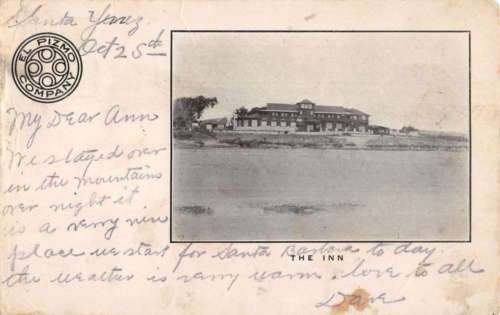 Santa Ynez.
Oct 25th
EL PIZMO COMPANY
My Dear Ann
We stayed over
in the mountains
over night it
is a verry nice
place we start for Santa Barbara to day.
the weather is verry warm. love to all
THE INN
Dave